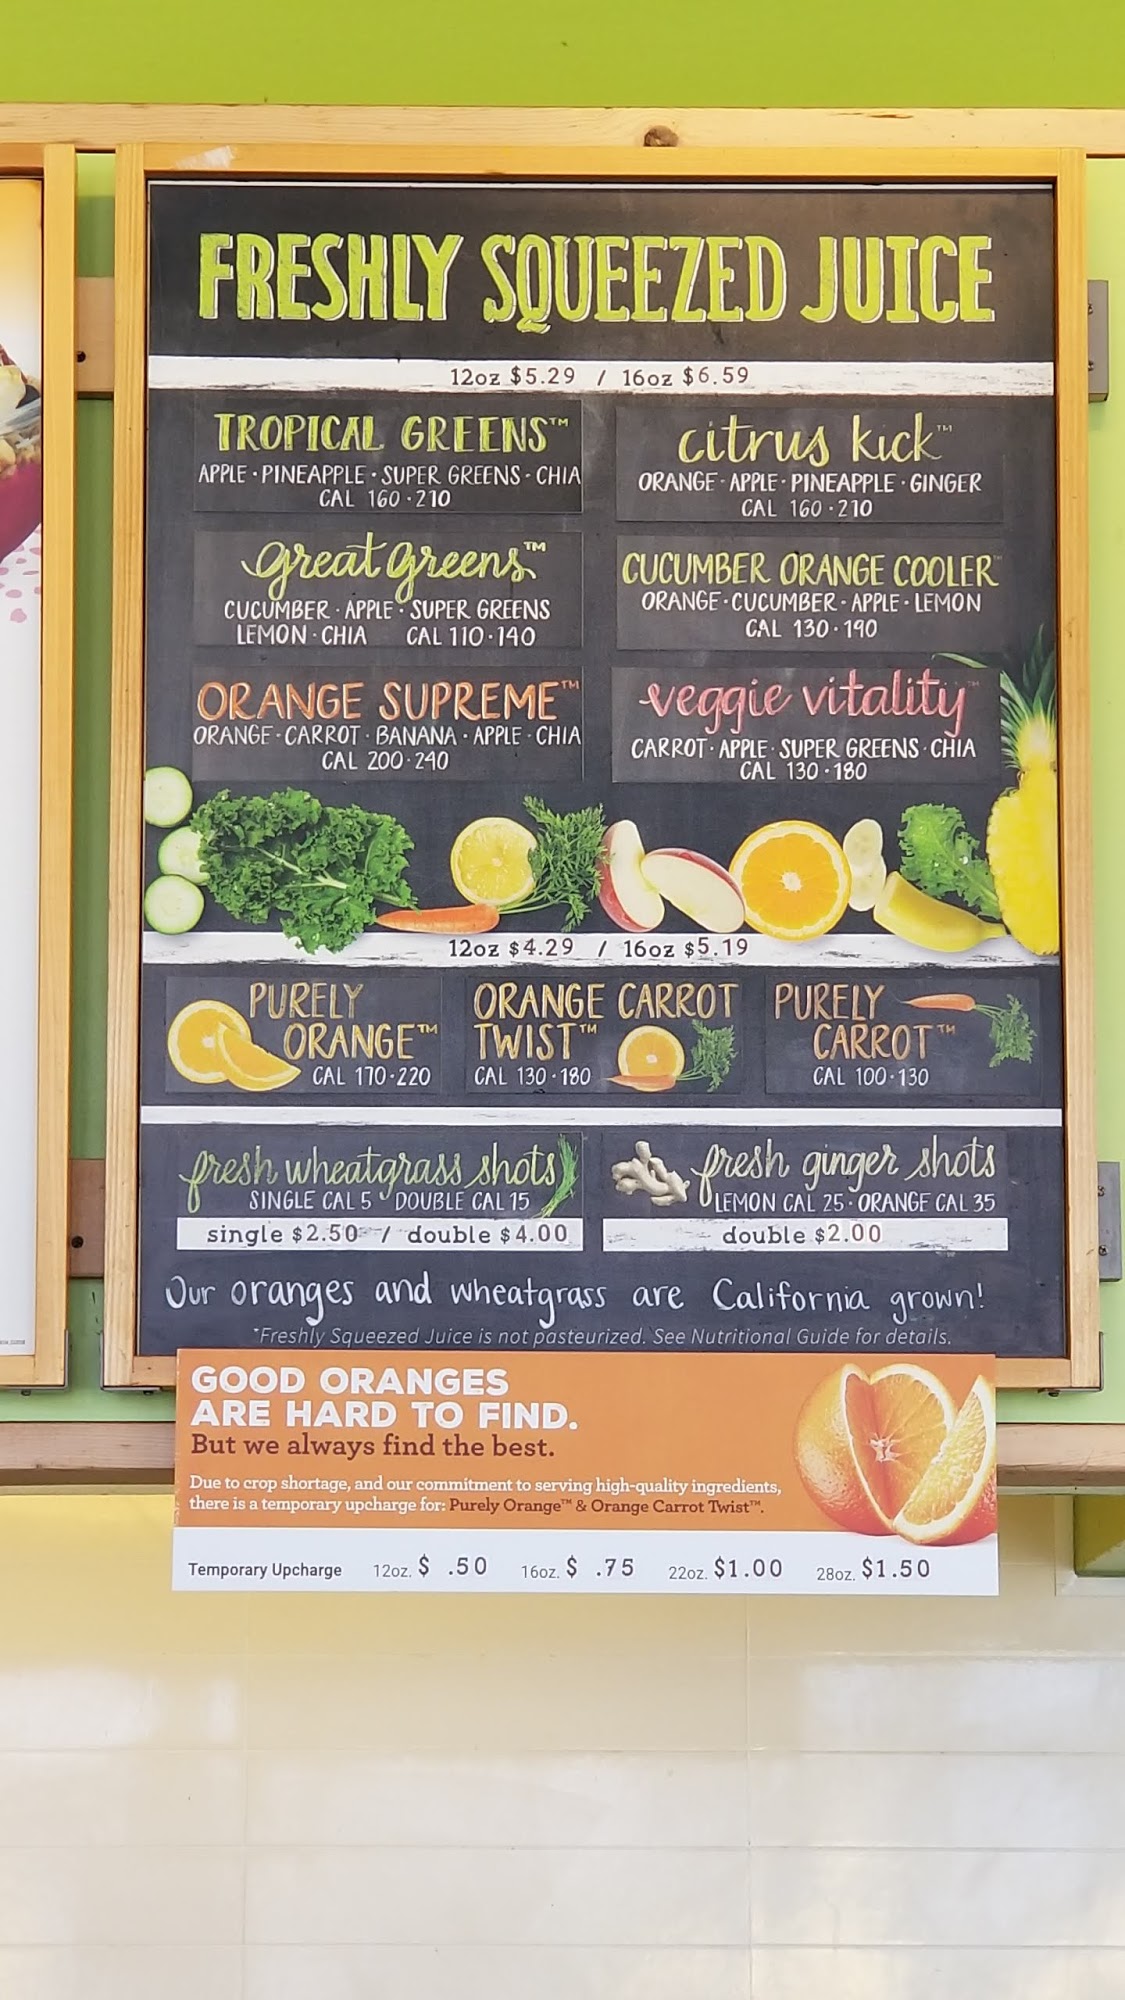 FRESHLY SQUEEZED JUICE
12oz $5.29 / 16oz $6.59
TROPICAL GREENS™
APPLE · PINEAPPLE · SUPER GREENS · CHIA
CAL 160 · 210
citrus kick™
ORANGE · APPLE · PINEAPPLE · GINGER
CAL 160 · 210
great greens™
CUCUMBER · APPLE · SUPER GREENS
LEMON · CHIA CAL 110 · 140
CUCUMBER ORANGE COOLER™
ORANGE · CUCUMBER · APPLE · LEMON
CAL 130 · 190
ORANGE SUPREME™
ORANGE · CARROT · BANANA · APPLE · CHIA
CAL 200 · 240
veggie vitality™
CARROT · APPLE · SUPER GREENS · CHIA
CAL 130 · 180
12oz $4.29 / 16oz $5.19
PURELY
ORANGE™
CAL 170 · 220
ORANGE CARROT
TWIST™
CAL 130 · 180
PURELY
CARROT™
CAL 100 · 130
fresh wheatgrass shots
SINGLE CAL 5 DOUBLE CAL 15
single $2.50 / double $4.00
fresh ginger shots
LEMON CAL 25 · ORANGE CAL 35
double $2.00
Our oranges and wheatgrass are California grown!
*Freshly Squeezed Juice is not pasteurized. See Nutritional Guide for details.
GOOD ORANGES
ARE HARD TO FIND.
But we always find the best.
Due to crop shortage, and our commitment to serving high-quality ingredients,
there is a temporary upcharge for: Purely Orange™ & Orange Carrot Twist™.
Temporary Upcharge 12oz. $ .50 16oz. $ .75 22oz. $1.00 28oz. $1.50